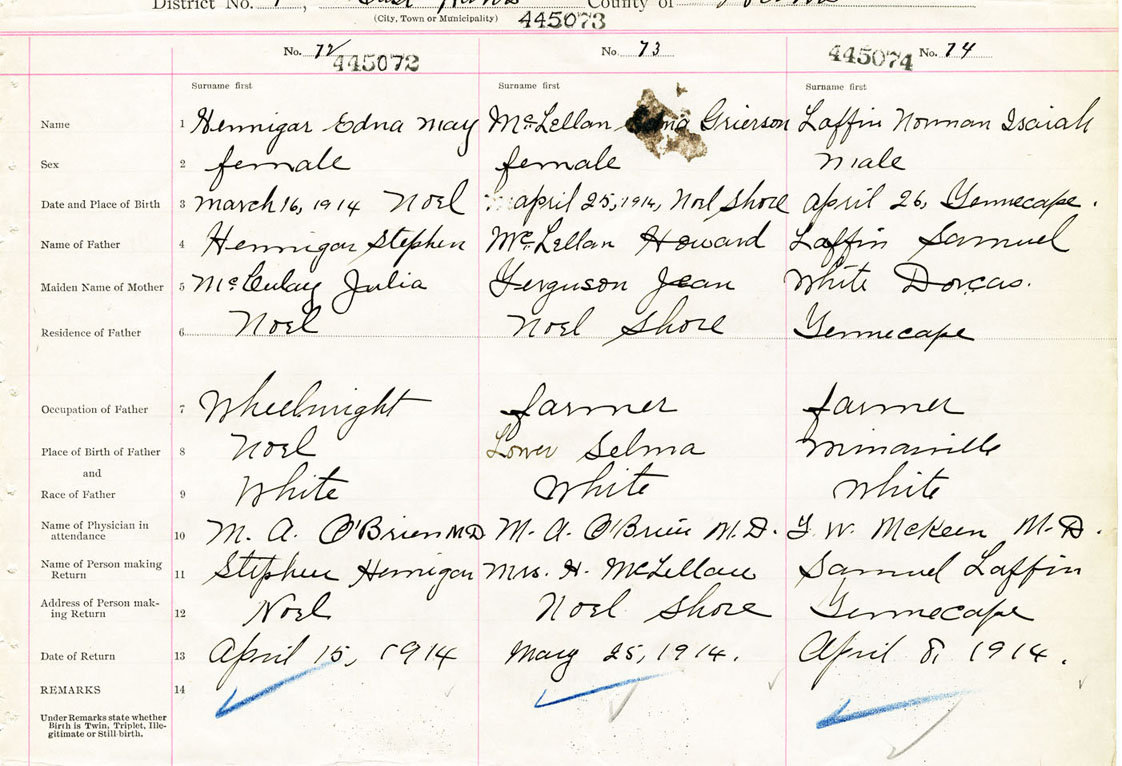 District No. East Hants County of
(City, Town or Municipality) 445073
No. 72 445072 No. 73 445074 No. 74
Surname first Surname first Surname first
Name 1 Hennigar Edna May McLellan Grierson Laffin Norman Isaiah
Sex 2 female female male
Date and Place of Birth 3 March 16, 1914 Noel April 25, 1914, Noel Shore April 26, Tennecape.
Name of Father 4 Hennigar Stephen McLellan Howard Laffin Samuel
Maiden Name of Mother 5 Julia Ferguson Jean White Dorcas.
Residence of Father 6 Noel Noel Shore Tennecape
Occupation of Father 7 Wheelwright farmer farmer
Place of Birth of Father 8 Noel Lower Selma Minasville
and
Race of Father 9 White White White
Name of Physician in
attendance 10 M. A. O'Brien M.D M. A. O'Brien M.D. W. McKeen M.D.
Name of Person making
Return 11 Stephen Hennigar Mrs. H. McLellan Samuel Laffin
Address of Person mak-
ing Return 12 Noel Noel Shore Tennecape
Date of Return 13 April 15, 1914 May 25, 1914. April 8, 1914.
REMARKS 14
Under Remarks state whether
Birth is Twin, Triplet, Ille-
gitimate or Still-birth.